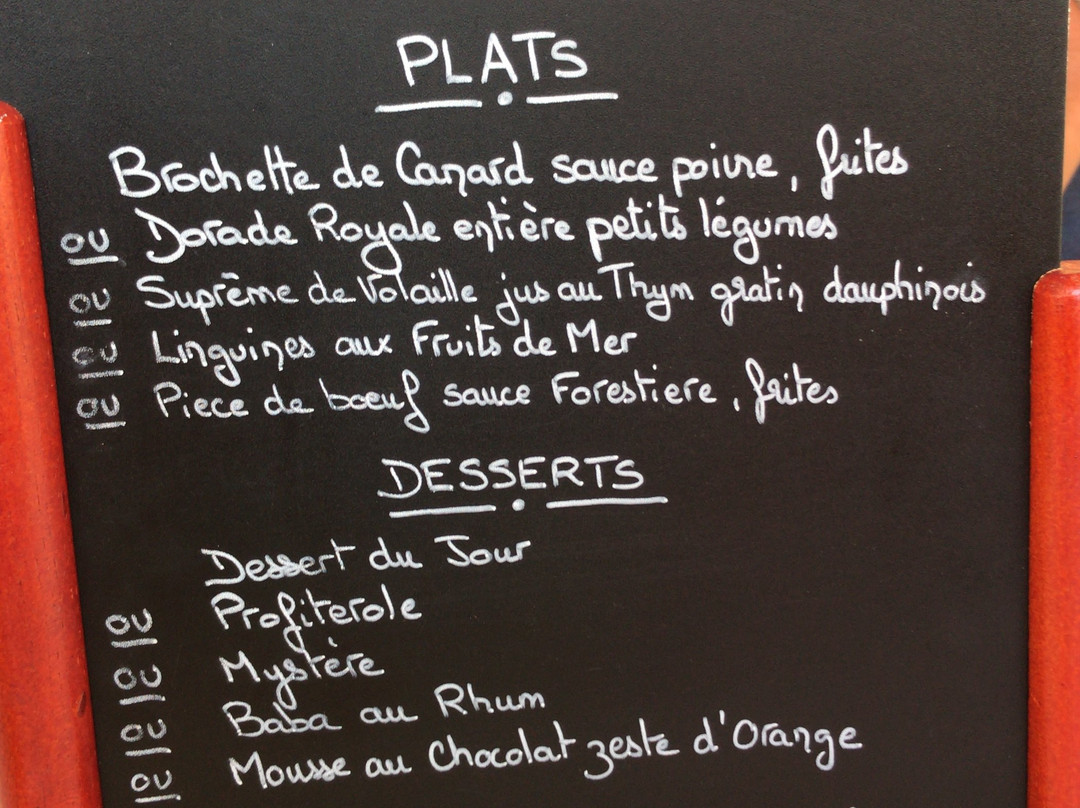 PLATS
Brochette de Canard sauce poivre, frites
ou Dorade Royale entière petits légumes
ou Suprême de Volaille jus au Thym gratin dauphinois
ou Linguines aux Fruits de Mer
ou Piece de boeuf sauce Forestiere, frites
DESSERTS
Dessert du Jour
ou Profiterole
ou Mystère
ou Baba au Rhum
ou Mousse au Chocolat zeste d'Orange